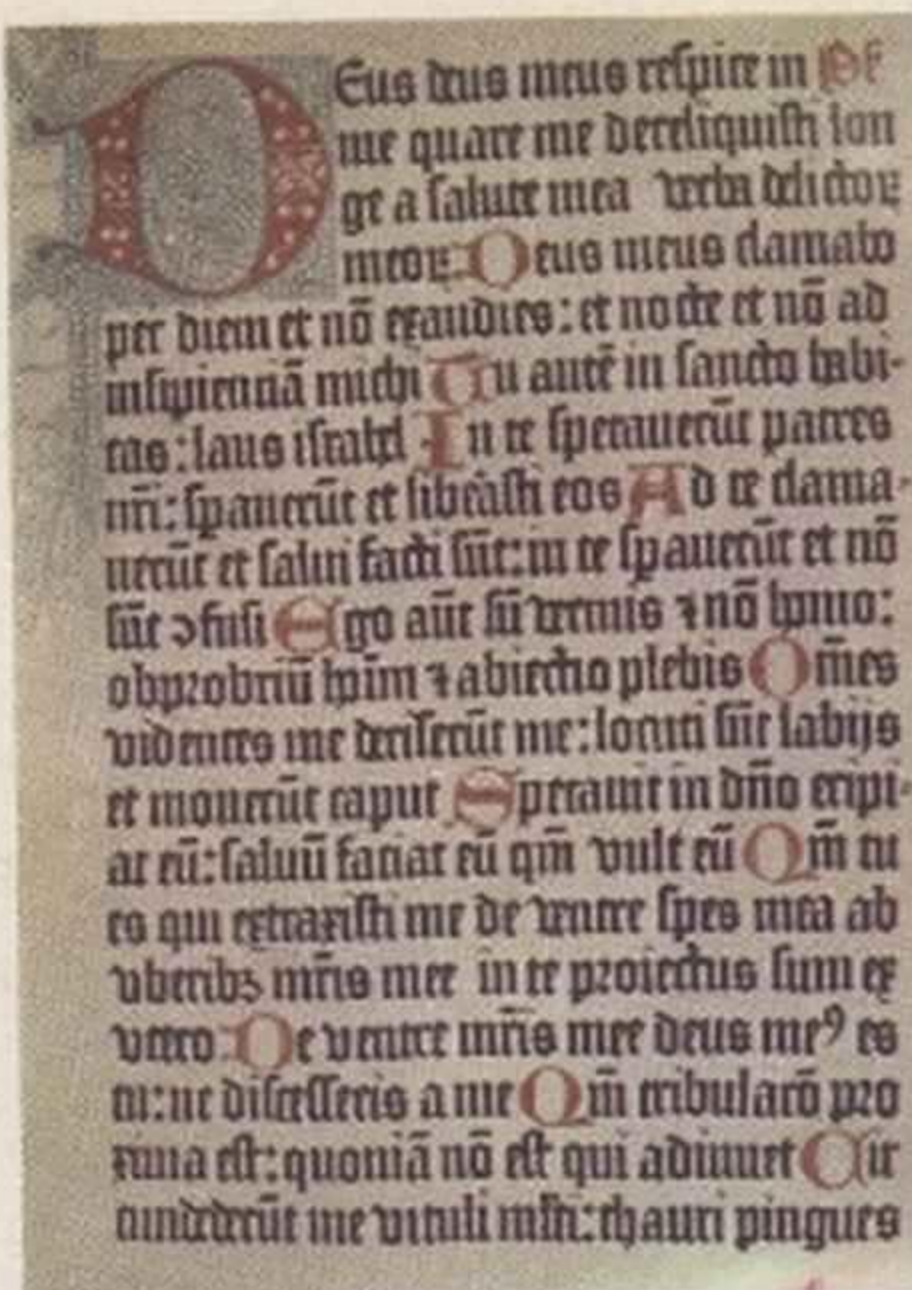 DEus deus meus respice in Ps
me quare me dereliquisti lon
ge a salute mea verba delictoꝝ
meoꝝ: Deus meus clamabo
per diem et nō exaudies: et nocte et nō ad
insipienciā michi Tu autē in sancto habi-
tas: laus israhel In te sperauerūt patres
nr̄i: spauerūt et libēasti eos Ad te clama-
uerūt et salui facti sūt: in te spauerūt et nō
sūt ɔfusi Ego aūt sū vermis ⁊ nō homo:
obprobriū hoīm ⁊ abiectio plebis Om̄es
videntes me deriserūt me: locuti sūt labijs
et mouerūt caput Sperauit in dn̄o eripi-
at eū: saluū faciat eū qm̄ vult eū Qm̄ tu
es qui extraxisti me de ventre spes mea ab
vberibꝫ mr̄is mee in te proiectus sum ex
vtero: De ventre mr̄is mee deus meꝰ es
tu: ne discesseris a me Qm̄ tribulacō pro
xima est: quoniā nō est qui adiuuet Cir
cumdederūt me vituli mlti: thauri pingues